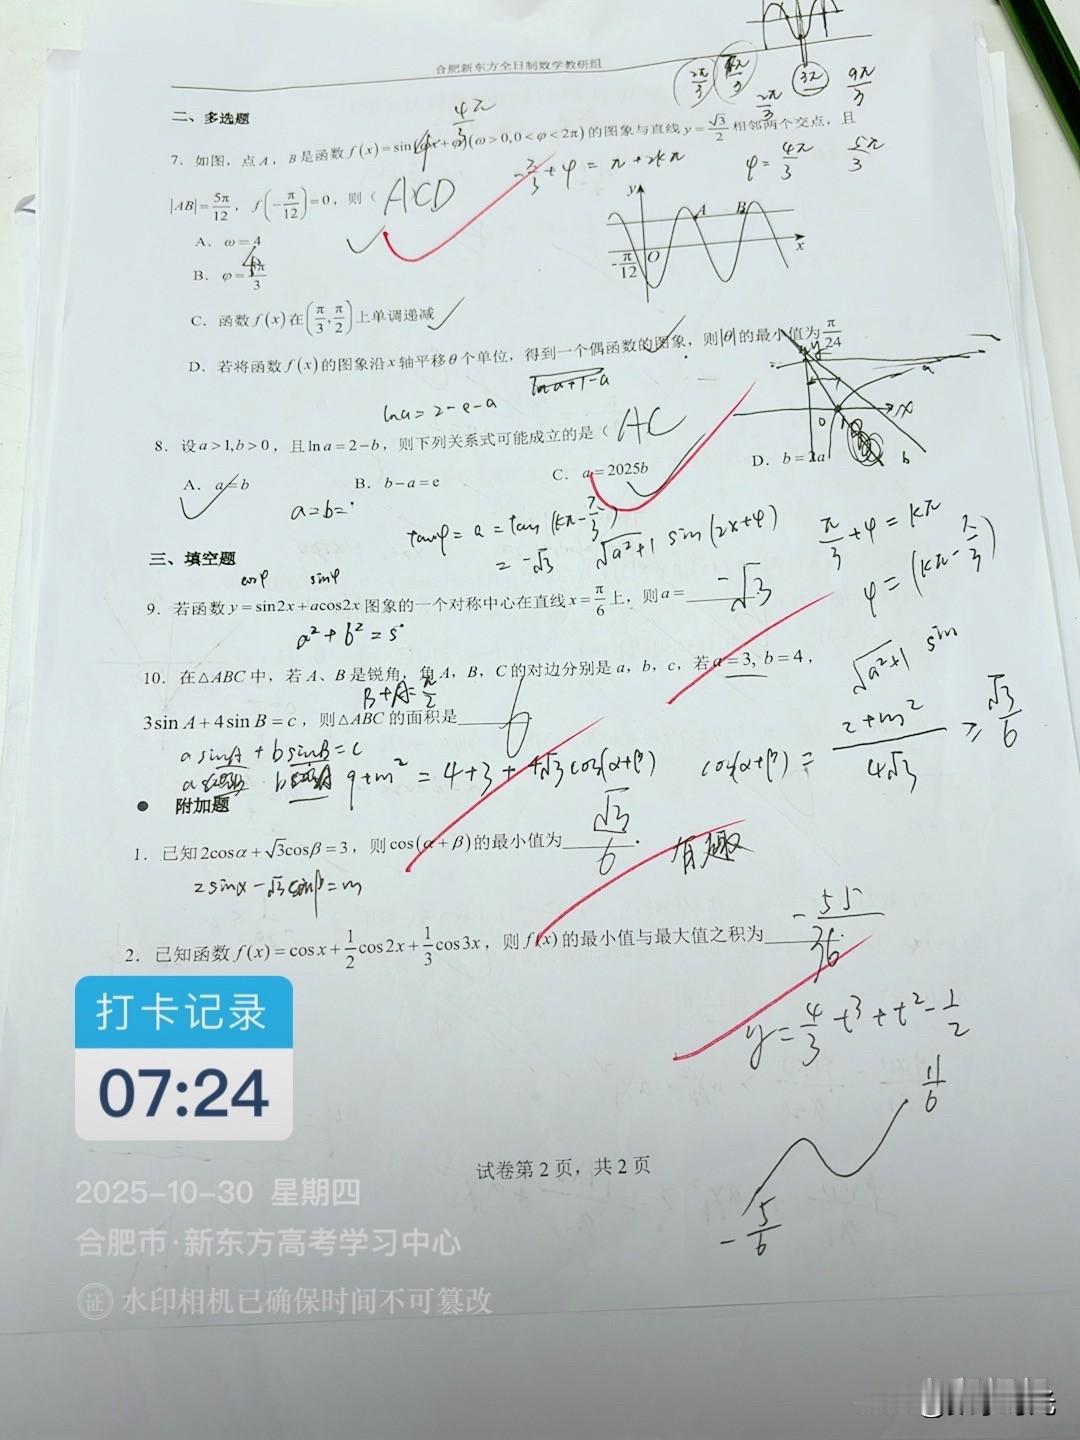 合肥新东方全日制数学教研组
二、多选题
7. 如图，点A，B是函数f(x)=sin(ωx+φ)(ω>0,0<φ<2π)的图象与直线y=√3/2相邻两个交点，且
|AB|=5π/12，f(-π/12)=0，则（ ACD
A. ω=4
B. φ=
C. 函数f(x)在(π/3,π/2)上单调递减
D. 若将函数f(x)的图象沿x轴平移θ个单位，得到一个偶函数的图象，则|θ|的最小值为π/24
4π/3
2π/3
3π
9π/3
2π/3
-π/3+φ=π+2kπ
φ=4π/3
5π/3
y
A
B
x
-π/12
O
lna=2-e-a
lna+1-a
8. 设a>1,b>0，且lna=2-b，则下列关系式可能成立的是（ AC
A. a=b
B. b-a=e
C. a=2025b
D. b=2a
y
x
0
1
a
b
a=b=
tanφ=a=tan(kπ-π/3)
=-√3
√a²+1 sin(2x+φ)
π/3+φ=kπ
φ=(kπ-π/3)
三、填空题
cosφ sinφ
9. 若函数y=sin2x+acos2x图象的一个对称中心在直线x=π/6上，则a= -√3
a²+b²=5
√a²+1 sin
10. 在△ABC中，若A、B是锐角，角A，B，C的对边分别是a，b，c，若a=3, b=4，
B+A=π/2
3sinA+4sinB=c，则△ABC的面积是 6
asinA+bsinB=c
9+m²=4+3+4√3cos(α+β)
cos(α+β)=2+m²/4√3≥√3/6
● 附加题
1. 已知2cosα+√3cosβ=3，则cos(α+β)的最小值为 √3/6.
有趣
2sinα-√3sinβ=m
2. 已知函数f(x)=cosx+1/2cos2x+1/3cos3x，则f(x)的最小值与最大值之积为 -55/36.
y=4/3t³+t²-1/2
11/6
-5/6
打卡记录
07:24
试卷第2页，共2页
2025-10-30 星期四
合肥市·新东方高考学习中心
证 水印相机已确保时间不可篡改